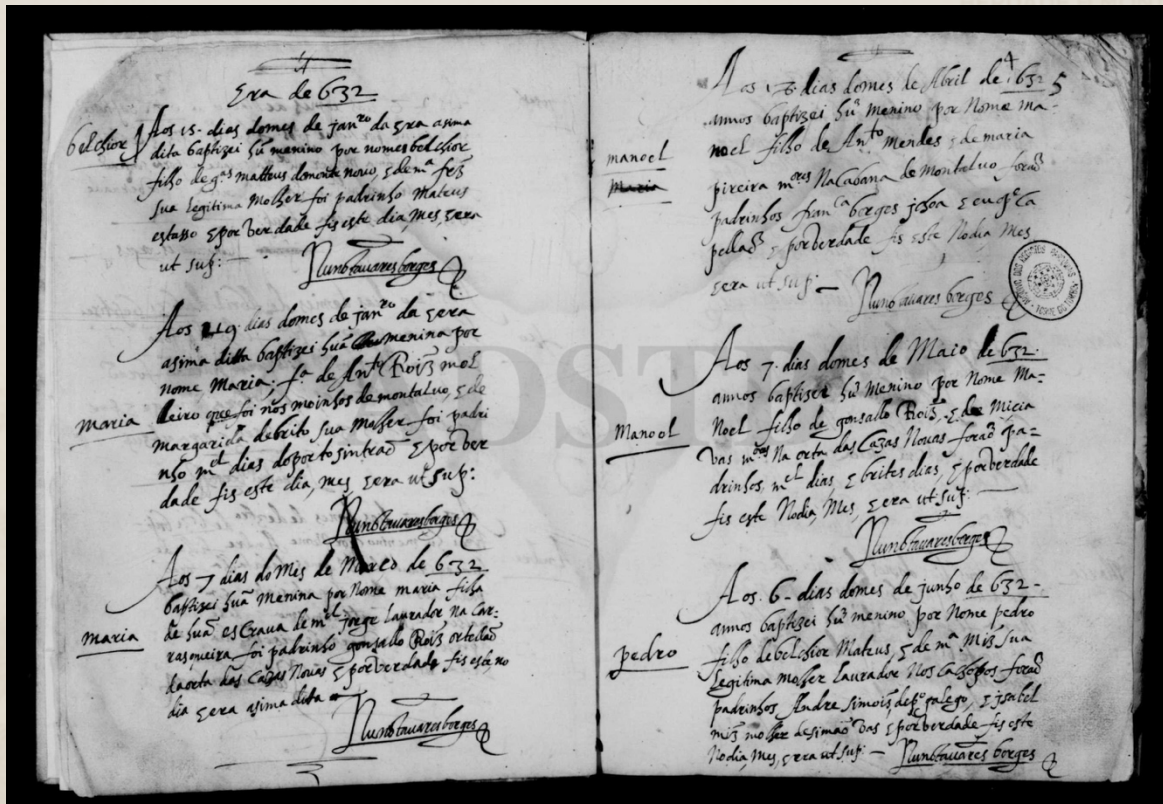 Era de 632
belchior
Aos 15 dias do mes de janro da Era asima
dita baptizei hũ menino por nome belchior
filho de gas matteus do monte novo, E de ma frz
sua legitima molher foi padrinho Mateus
estasso E por verdade fis este dia, mes, E era
ut sup:
Nuno tavares borges
Aos 19 dias do mes de janro da Era
asima ditta baptizei huã menina por
nome Maria: fa de Anto Roiz mol
maria
leiro que foi nos moinhos de montalvo, E de
margarida de brito sua molher foi padri
nho mel dias do porto sintraõ E por ver
dade fis este dia, mes, E era ut sup:
Nuno tavares borges
Aos 7 dias do Mes de Março de 632
baptizei huã Menina por Nome maria filha
maria
de huã esCrava de mel jorge laurador na Car-
rasqueira foi padrinho gonsallo Roiz ortelaõ
da orta das Cazas Novas E por verdade fis este no
dia E era asima dita
Nuno tavares borges
5
Aos dias do mes de Abril de 632
annos baptizei hũ menino por Nome ma-
manoel
noel filho de Anto Mendes E de maria
Maria
pireira mores Na Cabana de Montalvo foraõ
padrinhos franca borges E
pellaõ E por verdade fis Este No dia Mes
E era ut sup
Nuno tavares borges
ARQUIVO DOS REGISTOS PAROQUIAIS TORRE DO TOMBO
Aos 7 dias do mes de Maio de 632
annos baptizei hũ Menino por Nome Ma-
Manoel
Noel filho de gonsallo Roiz, E de Micia
Vas mores Na orta das Cazas Novas foraõ pa-
drinhos, mel dias, E brites dias, E por verdade
fis este No dia, Mes, E era ut sup:
Nuno tavares borges
Aos 6 dias do mes de junho de 632
annos baptizei hũ menino por Nome pedro
pedro
filho de belchior Mateus, E de ma Miz sua
legitima molher laurador Nos foraõ
padrinhos Andre Simois, galego, E jsabel
miz molher de simaõ vas E por verdade fis este
No dia, Mes, E era ut sup:
Nuno tavares borges